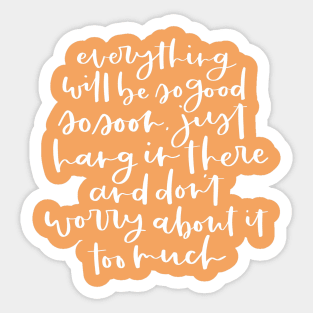 everything
will be so good
so soon. just
hang in there
and don't
worry about it
too much